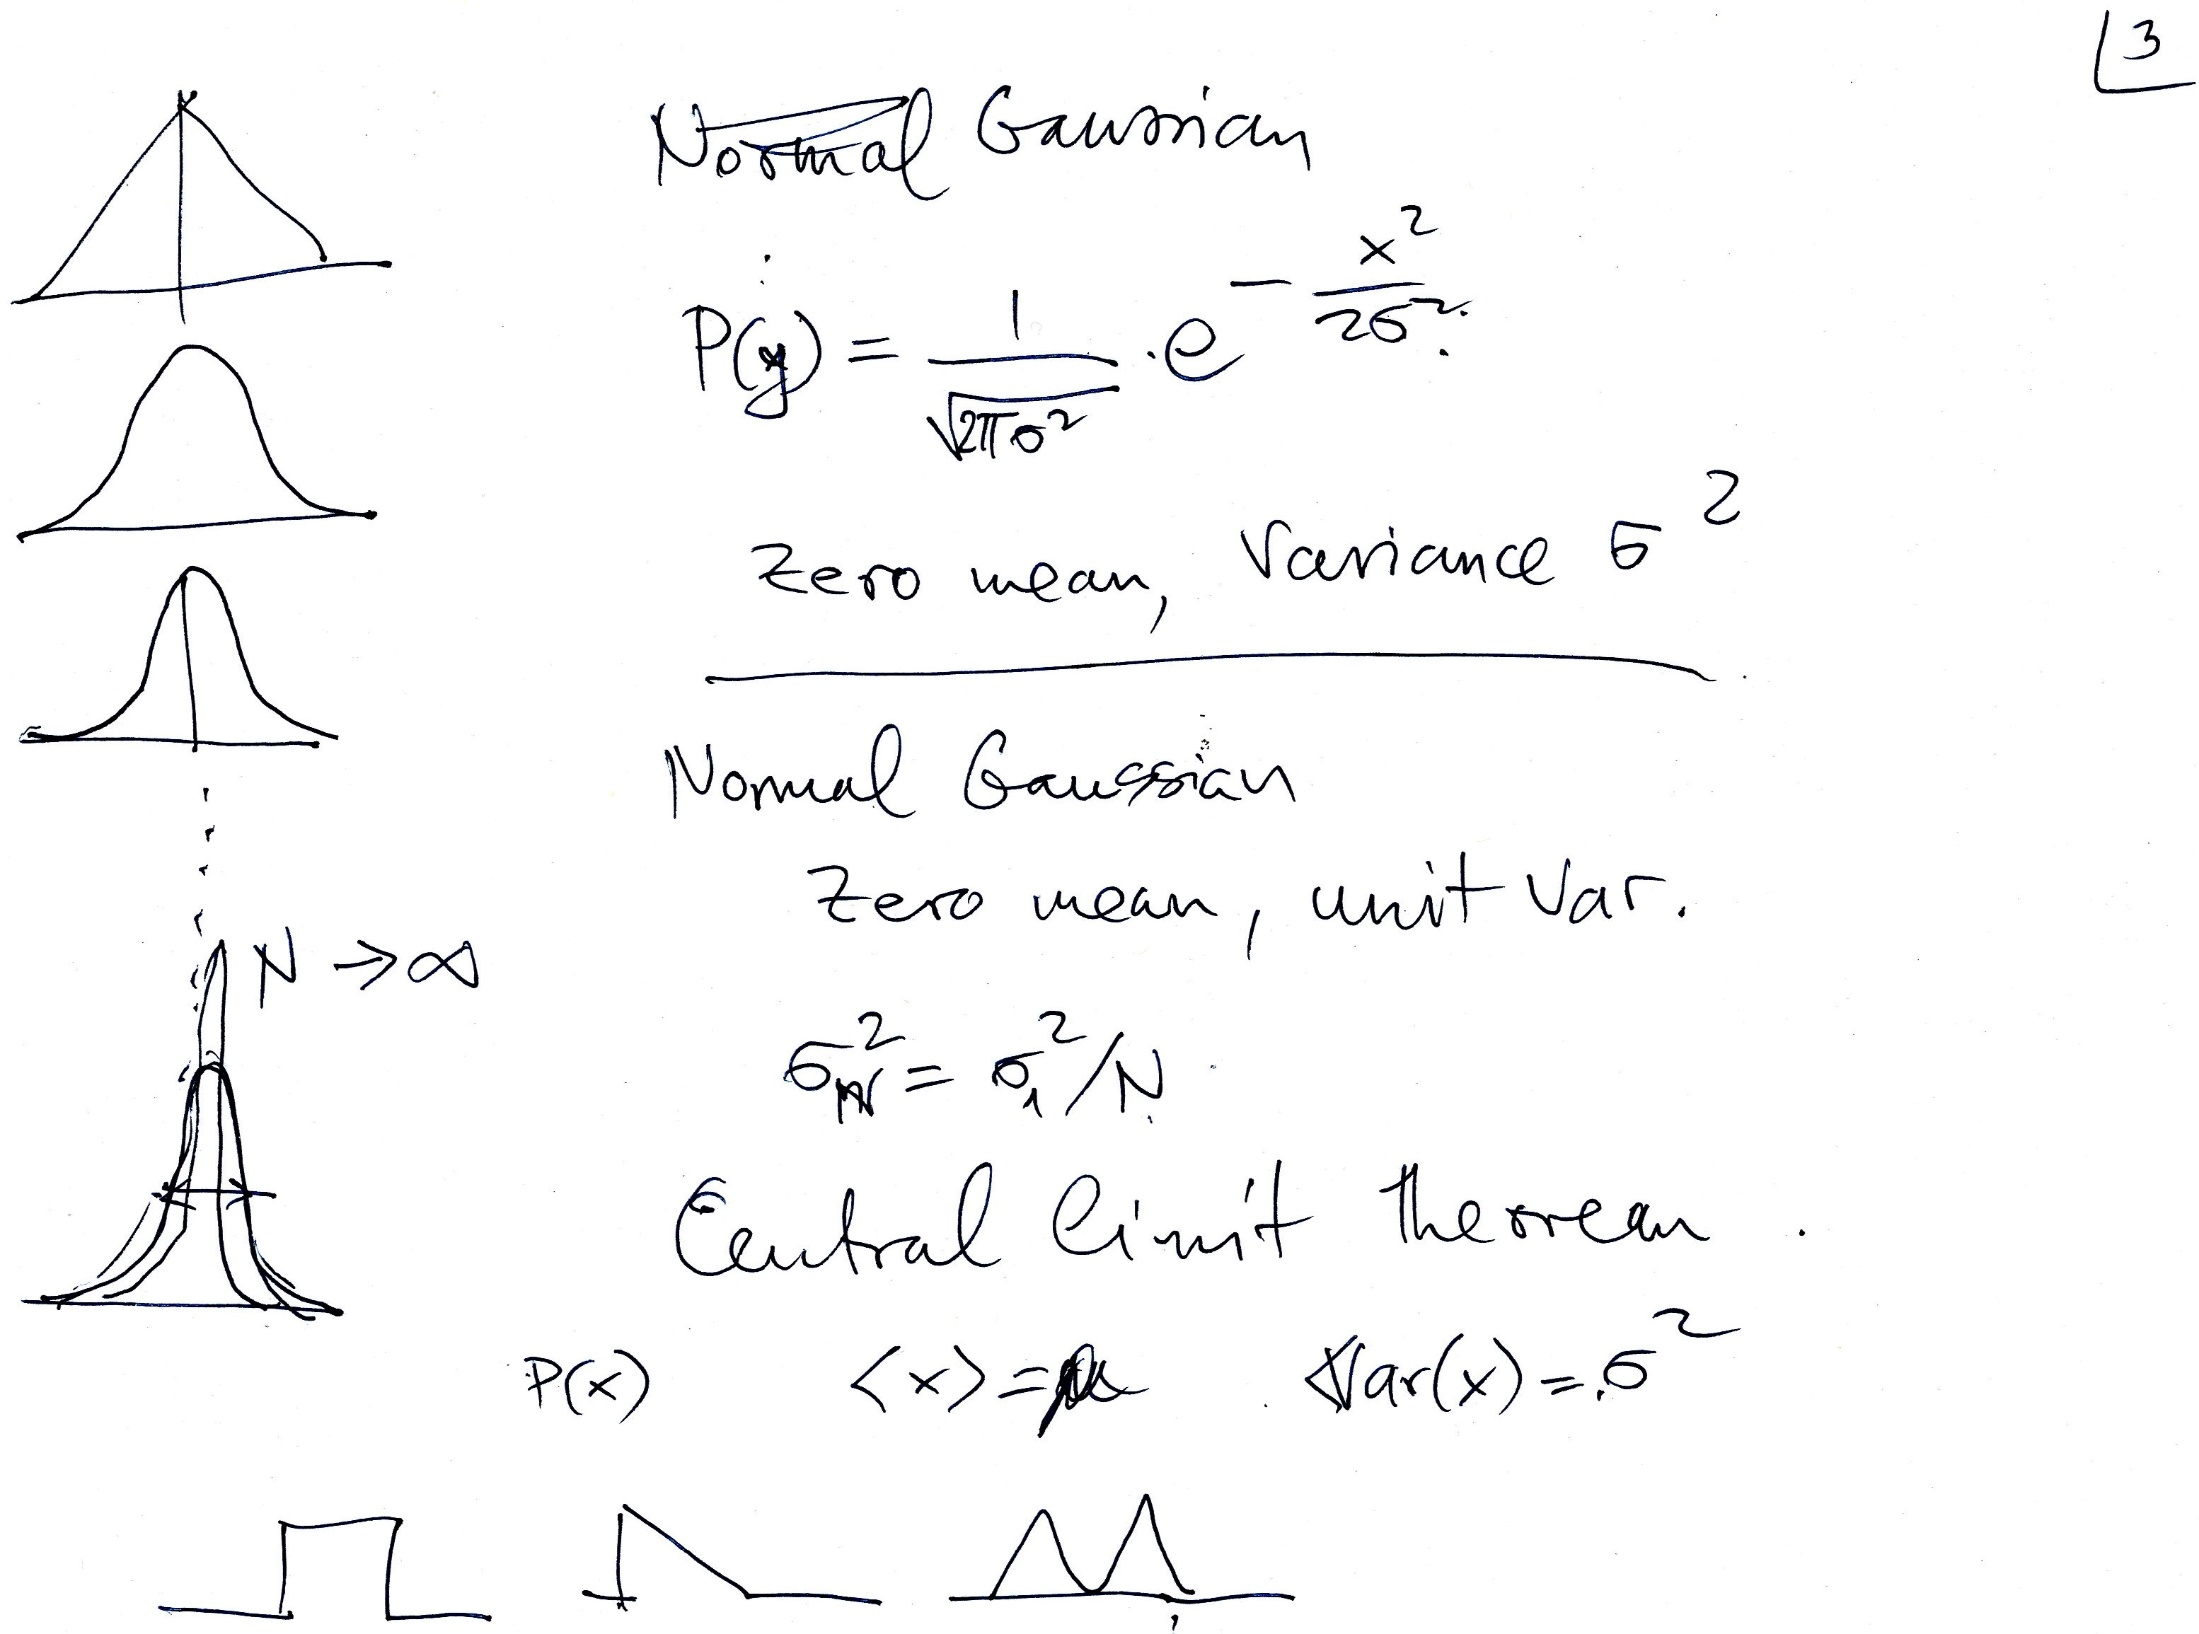 3
Normal Gaussian
P(y) = 1/√(2πσ²) · e^(−x²/(2σ²))
Zero mean, Variance σ²
Normal Gaussian
Zero mean, unit Var.
N → ∞
σ_N² = σ₁²/N
Central limit theorem.
P(x) <x> = μ Var(x) = σ²